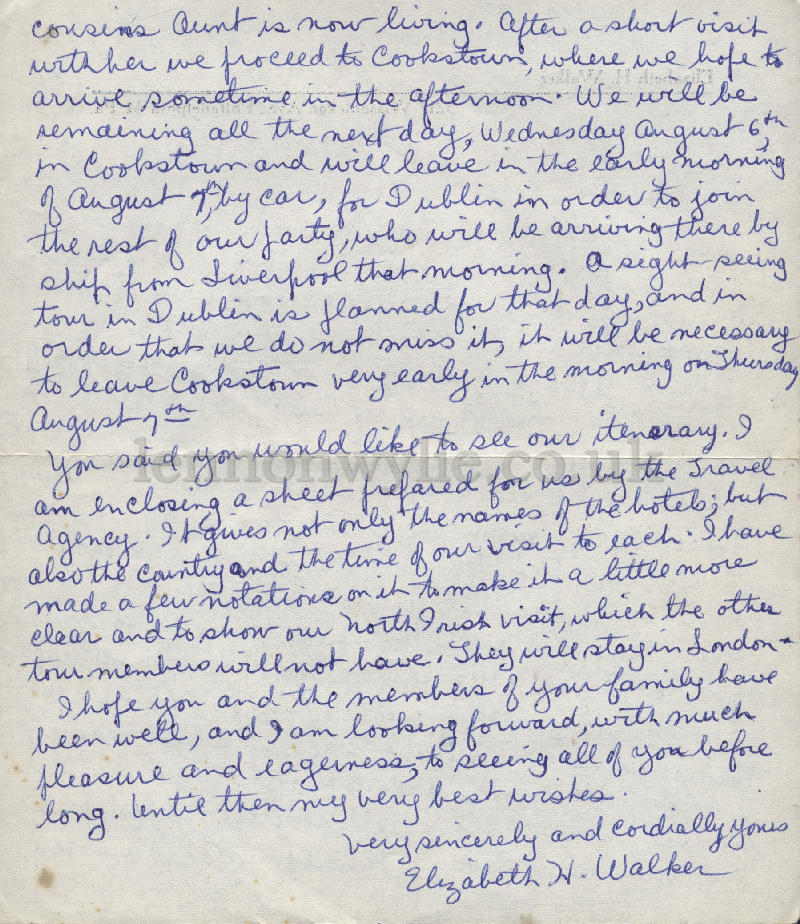 cousins Aunt is now living. After a short visit
with her we proceed to Cookstown, where we hope to
arrive sometime in the afternoon. We will be
remaining all the next day, Wednesday August 6th,
in Cookstown and will leave in the early morning
of August 7th, by car, for Dublin in order to join
the rest of our party, who will be arriving there by
ship from Liverpool that morning. A sight-seeing
tour in Dublin is planned for that day, and in
order that we do not miss it, it will be necessary
to leave Cookstown very early in the morning on Thursday
August 7th
You said you would like to see our itenerary. I
am enclosing a sheet prepared for us by the Travel
Agency. It gives not only the names of the hotels; but
also the country and the time of our visit to each. I have
made a few notations on it to make it a little more
clear and to show our North Irish visit, which the other
tour members will not have. They will stay in London.
I hope you and the members of your family have
been well, and I am looking forward, with much
pleasure and eagerness, to seeing all of you before
long. Until then my very best wishes.
Very sincerely and cordially yours
Elizabeth H. Walker
lennonwylie.co.uk